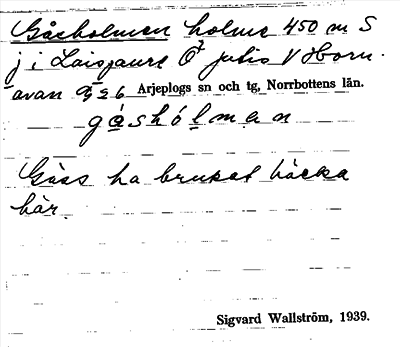 Gåsholmen holme 450 m S
j i Laisjaure Ö
avan 926 Arjeplogs sn och tg, Norrbottens län.
gåshólman
Gäss ha brukat häcka
här.
Sigvard Wallström, 1939.